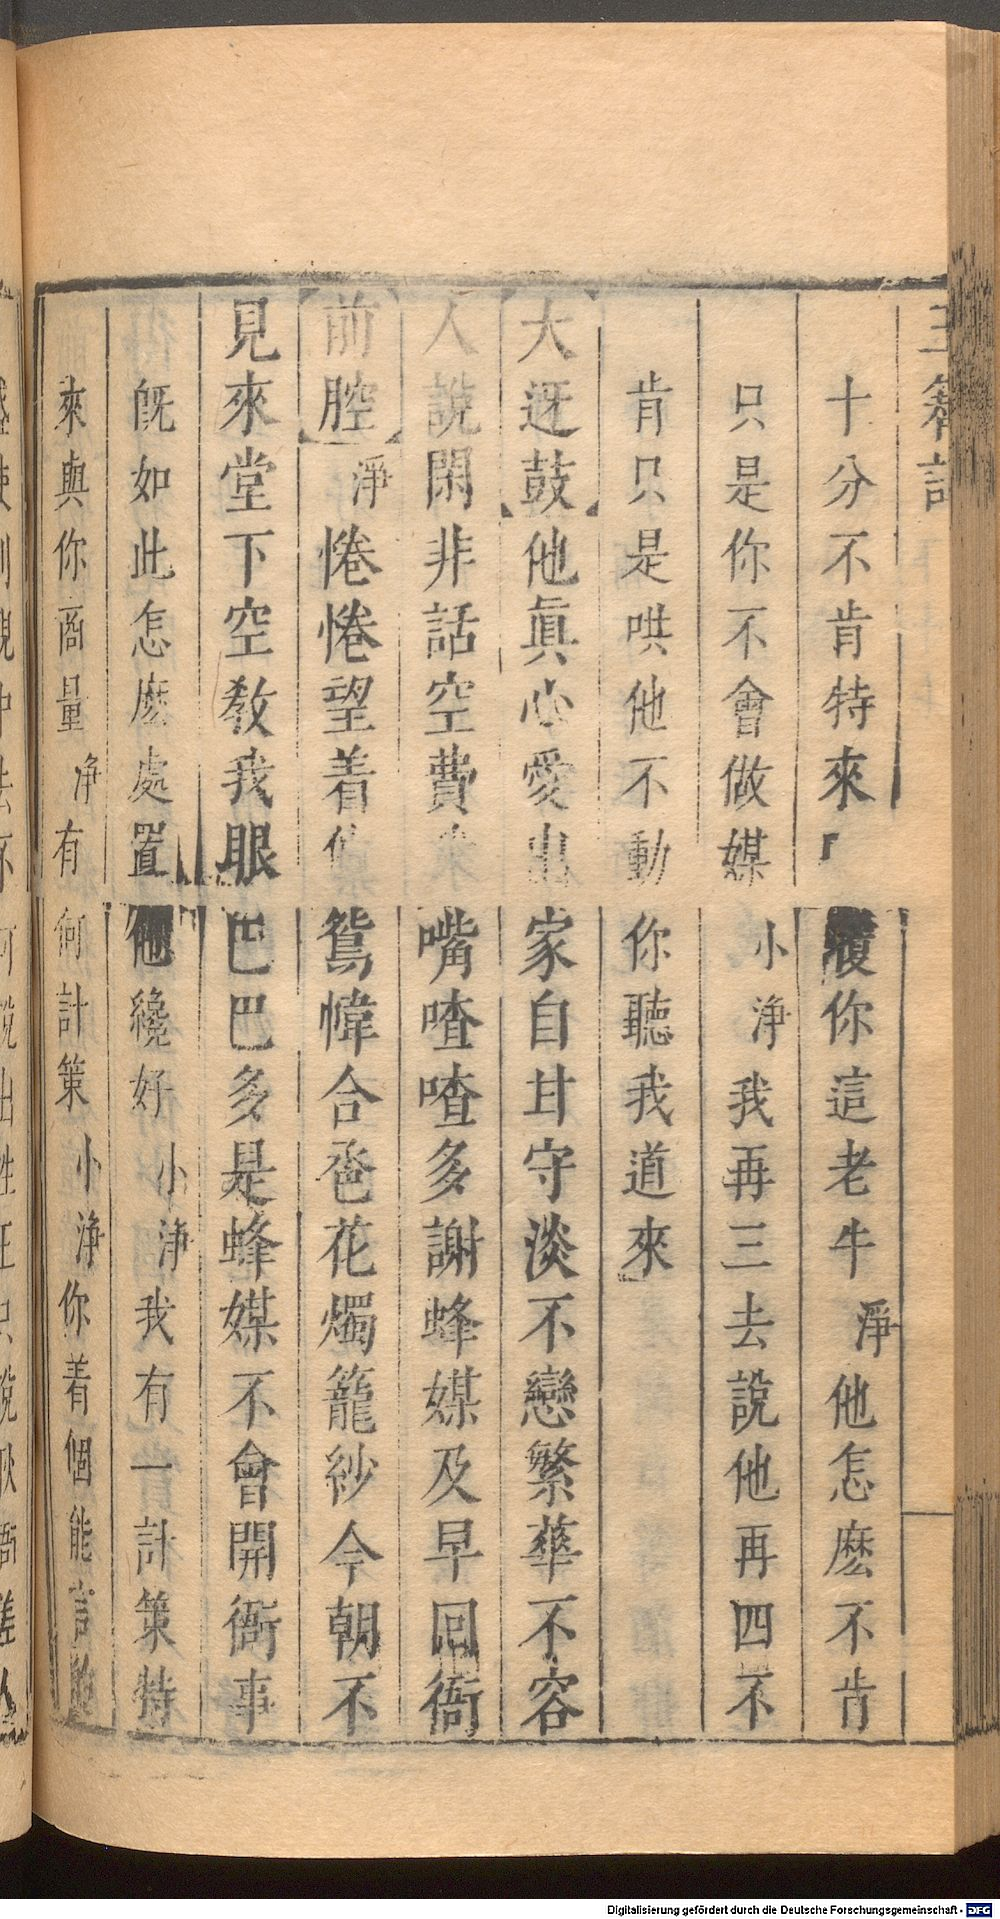 十分不肯特來覆你這老牛淨他怎麽不肯
只是你不會做媒小淨我再三去説他再四不
肯只是哄他不動你聽我道來
大迓鼓他眞心愛出家自甘守淡不戀繁華不容
人說閑非話空費嘴喳喳多謝蜂媒及早回衙
前腔淨惓惓望着鴛幃合卺花燭籠紗今朝不
見來堂下空教我眼巴巴多是蜂媒不會開衙事
旣如此怎麽處置他纔好小淨我有一計策特
來與你商量净有何計策小淨你着個能言
Digitalisierung gefördert durch die Deutsche Forschungsgemeinschaft - DFG